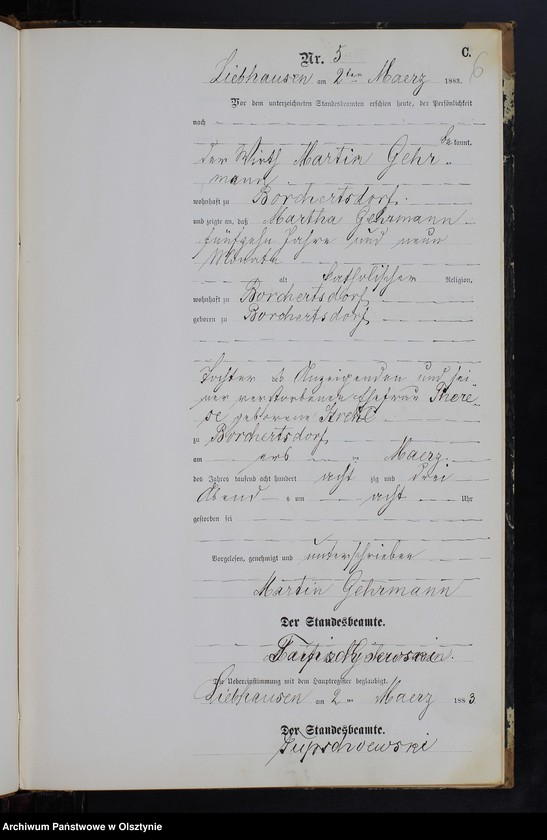 C.
6
Nr. 5
Liebhausen am 2ten Maerz 1883.
Vor dem unterzeichneten Standesbeamten erschien heute, der Persönlichkeit
nach
be kannt,
der Wirth Martin Gehr-
mann
wohnhaft zu Borchertsdorf
und zeigte an, daß Martha Gehrmann
fünfzehn Jahre und neun
Monate
alt katholischer Religion,
wohnhaft zu Borchertsdorf
geboren zu Borchertsdorf
Tochter des Anzeigenden und sei-
ner verstorbenen Ehefrau There-
se geborene
zu Borchertsdorf
am ersten Maerz
des Jahres tausend acht hundert acht zig und drei
Abends um acht Uhr
gestorben sei
Vorgelesen, genehmigt und unterschrieben
Martin Gehrmann
Der Standesbeamte.
Die Uebereinstimmung mit dem Hauptregister beglaubigt.
Liebhausen am 2ten Maerz 1883.
Der Standesbeamte.
Archiwum Państwowe w Olsztynie